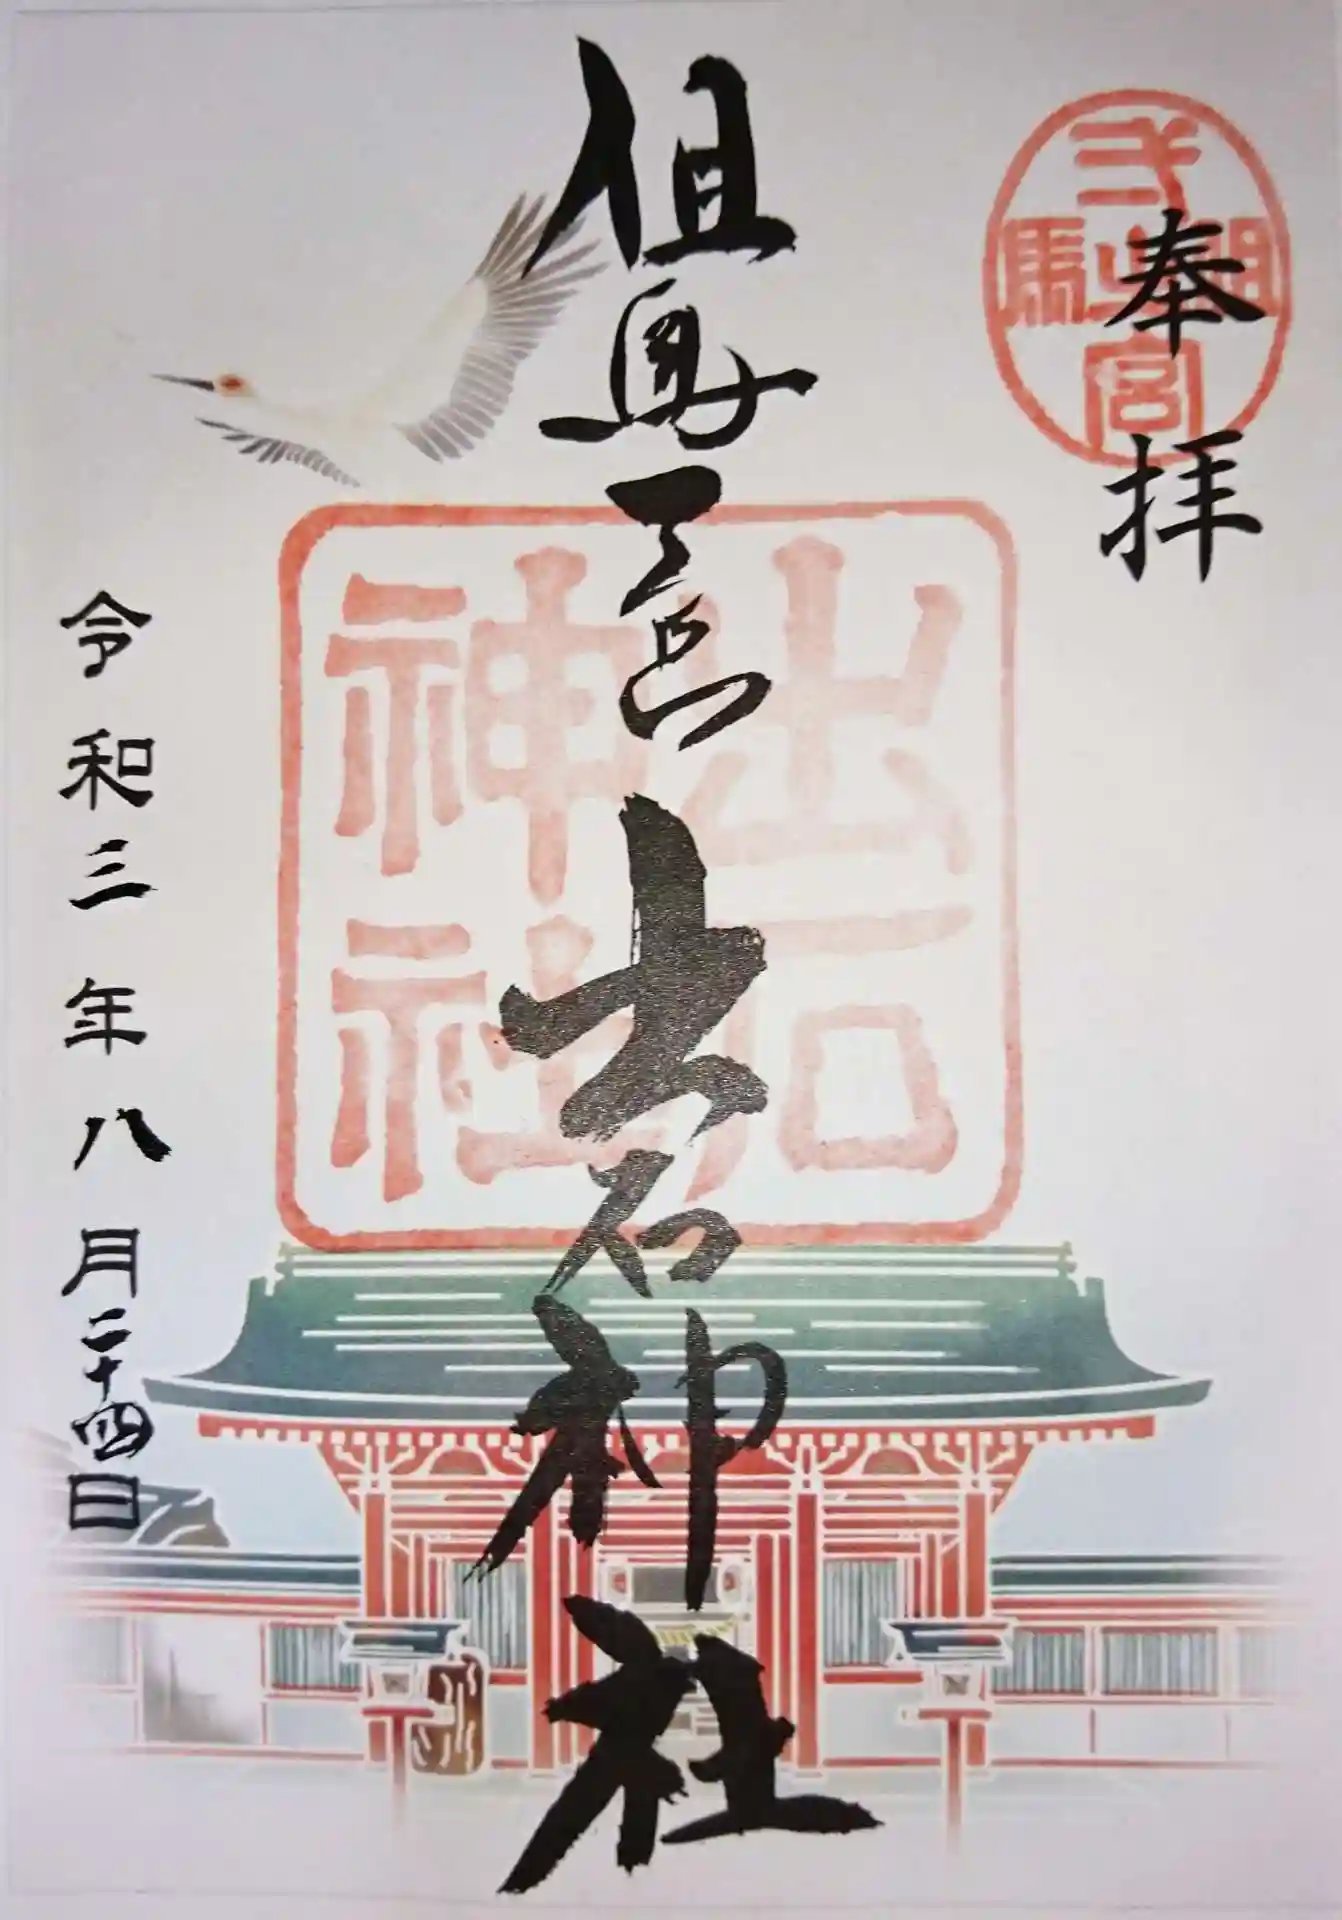 奉拝
弌之宮
但馬
但馬一宮 出石神社
出石
神社
令和三年八月二十四日